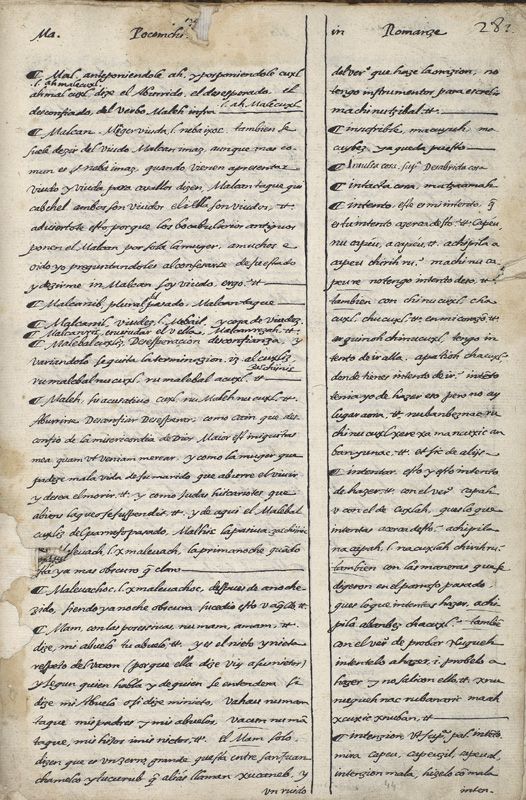 Ma. Pocomchi.
¶ Mal, anteponiendole ah, y posponiendole cuxl
l. ahmalecuxl.
ahmal cuxl, dize el Aburrido, el desesperado, el
desconfiado, del verbo Maleh infra l. ah Malecuxl.
¶ Malcan. Mûger viuda, l. nebaixoc. tambien se
suele dezir del viudo Malcan imaz, aunque mas co-
mun es st neba imaz, quando vienen apresentar
viudo y viuda para casallos dizen, Malcan taque qui
cabchel ambos son viudos, el & ella son viudos, &.
adviertote esto porque los bocabularios antiguos
ponen el Malcan por sola la muger, a muchos e
oido yo preguntandoles al confesarse de su estado
y dezirme in Malcan soy viudo. ergo. &
¶ Malcanib, plural passado, Malcan taque
¶ Malcanil, viudez, Mebail, y cosa de viudez.
¶ Malcanziz, enviudar el v ella. Malcanrizah. &
¶ Malebal cuxlis, Desesperacion desconfianza, y
variandolo se quita la terminazion, iz, al cuxlis,
ru malebal nu cuxl, ru malebal acuxl, &
¶ Maleh, su acusativo cuxl, nu Maleh nu cuxl, &.
Aburrirse. Desconfiar Desesperar, como Cain que des
confio de la misericordia de Dios Maior est iniquitas
mea quam vt veniam merear, y como la muger que
padeze mala vida de su marido que aborrece el vivir
y desea el morir, &. y como Judas Iscariotes que
abiens laqueo se suspendit. &. y de aqui el Malebal
cuxlis del parrafo pasado. Malhic la pasiva.
Maleuach, l. xmaleuach, la prima noche quãdo
esta ya mas obscuro q̃ claro
¶ Maleuachoc, l. xmaleuachoc, despues de anoche-
zido, siendo ya noche obscura sucedio esto
¶ Mam, con los posesivos, nu mam, amam, &
dize, mi abuelo tu abuelo, &. y es el nieto y nieta
respeto del varon (porque ella dize viy a su nieto)
y segun quien habla y de quien se entendera si
dize mi Abuelo o si dize mi nieto. Vahau nu mam
taque mis padres y mis abuelos. Vacun nu mã
taque, mis hijos i mis nietos, &. el Mam solo
dizen que es vn zerro grande que esta entre san Juan
chamelco y tucurub q̃ alias llaman xucaneb, y
vn ruido
in Romanze 282
del ver.º que haze la orazion, no
tengo instrumentos para escrebir
machi nu tzibal &
¶ insufrible, macuyuh ma
cuybez ya queda puesto
¶ Insulsa cosa, sup.ª Desabrida cosa
¶ intacta cosa, matzamah
¶ intento, este es mi intento, q̃
es tu intento azerca desto &. capeu
nu capeu, a capeu, &. achipila a
capeu chirih ru.º machi nu ca
peu re no tengo intento deso, &
tambien con chi nu cuxl cha
cuxl chu cuxl, &. en mi corazõ &
ar quinoh chi nu cuxl, tengo in-
tento de ir alla. apa tioh cha cuxl
donde tienes intento de ir? intẽto
tenia yo de hazer eso pero no ay
lugar aora, &. nu banbeznae ru
chi nu cuxl xere xa ma na xic an
ban yunac, &. et sic de alijs
¶ intentar, esto y esto intento
de hazer &. con el ver.º capah
v con el de cuxlah, que es lo que
intentas acerca desto? achipila
na capah, l. na cuxlah chirih ru.º
tambien con las maneras que se
digeron en el parrafo pasado
que es lo que intentas hazer, achi
pila abanbez cha cuxl.º tambiẽ
con el ver.º de probar
intentelo a hazer, i probelo a
hazer y no se lic on ello &
nu eyueh nac nu banaric maah
xcuxic xnuban, &
¶ intenzion, vt sup.ª pal. intẽto
mira capeu, capeuzil, capeual,
intenzion mala, hizelo cõ mala
inten-